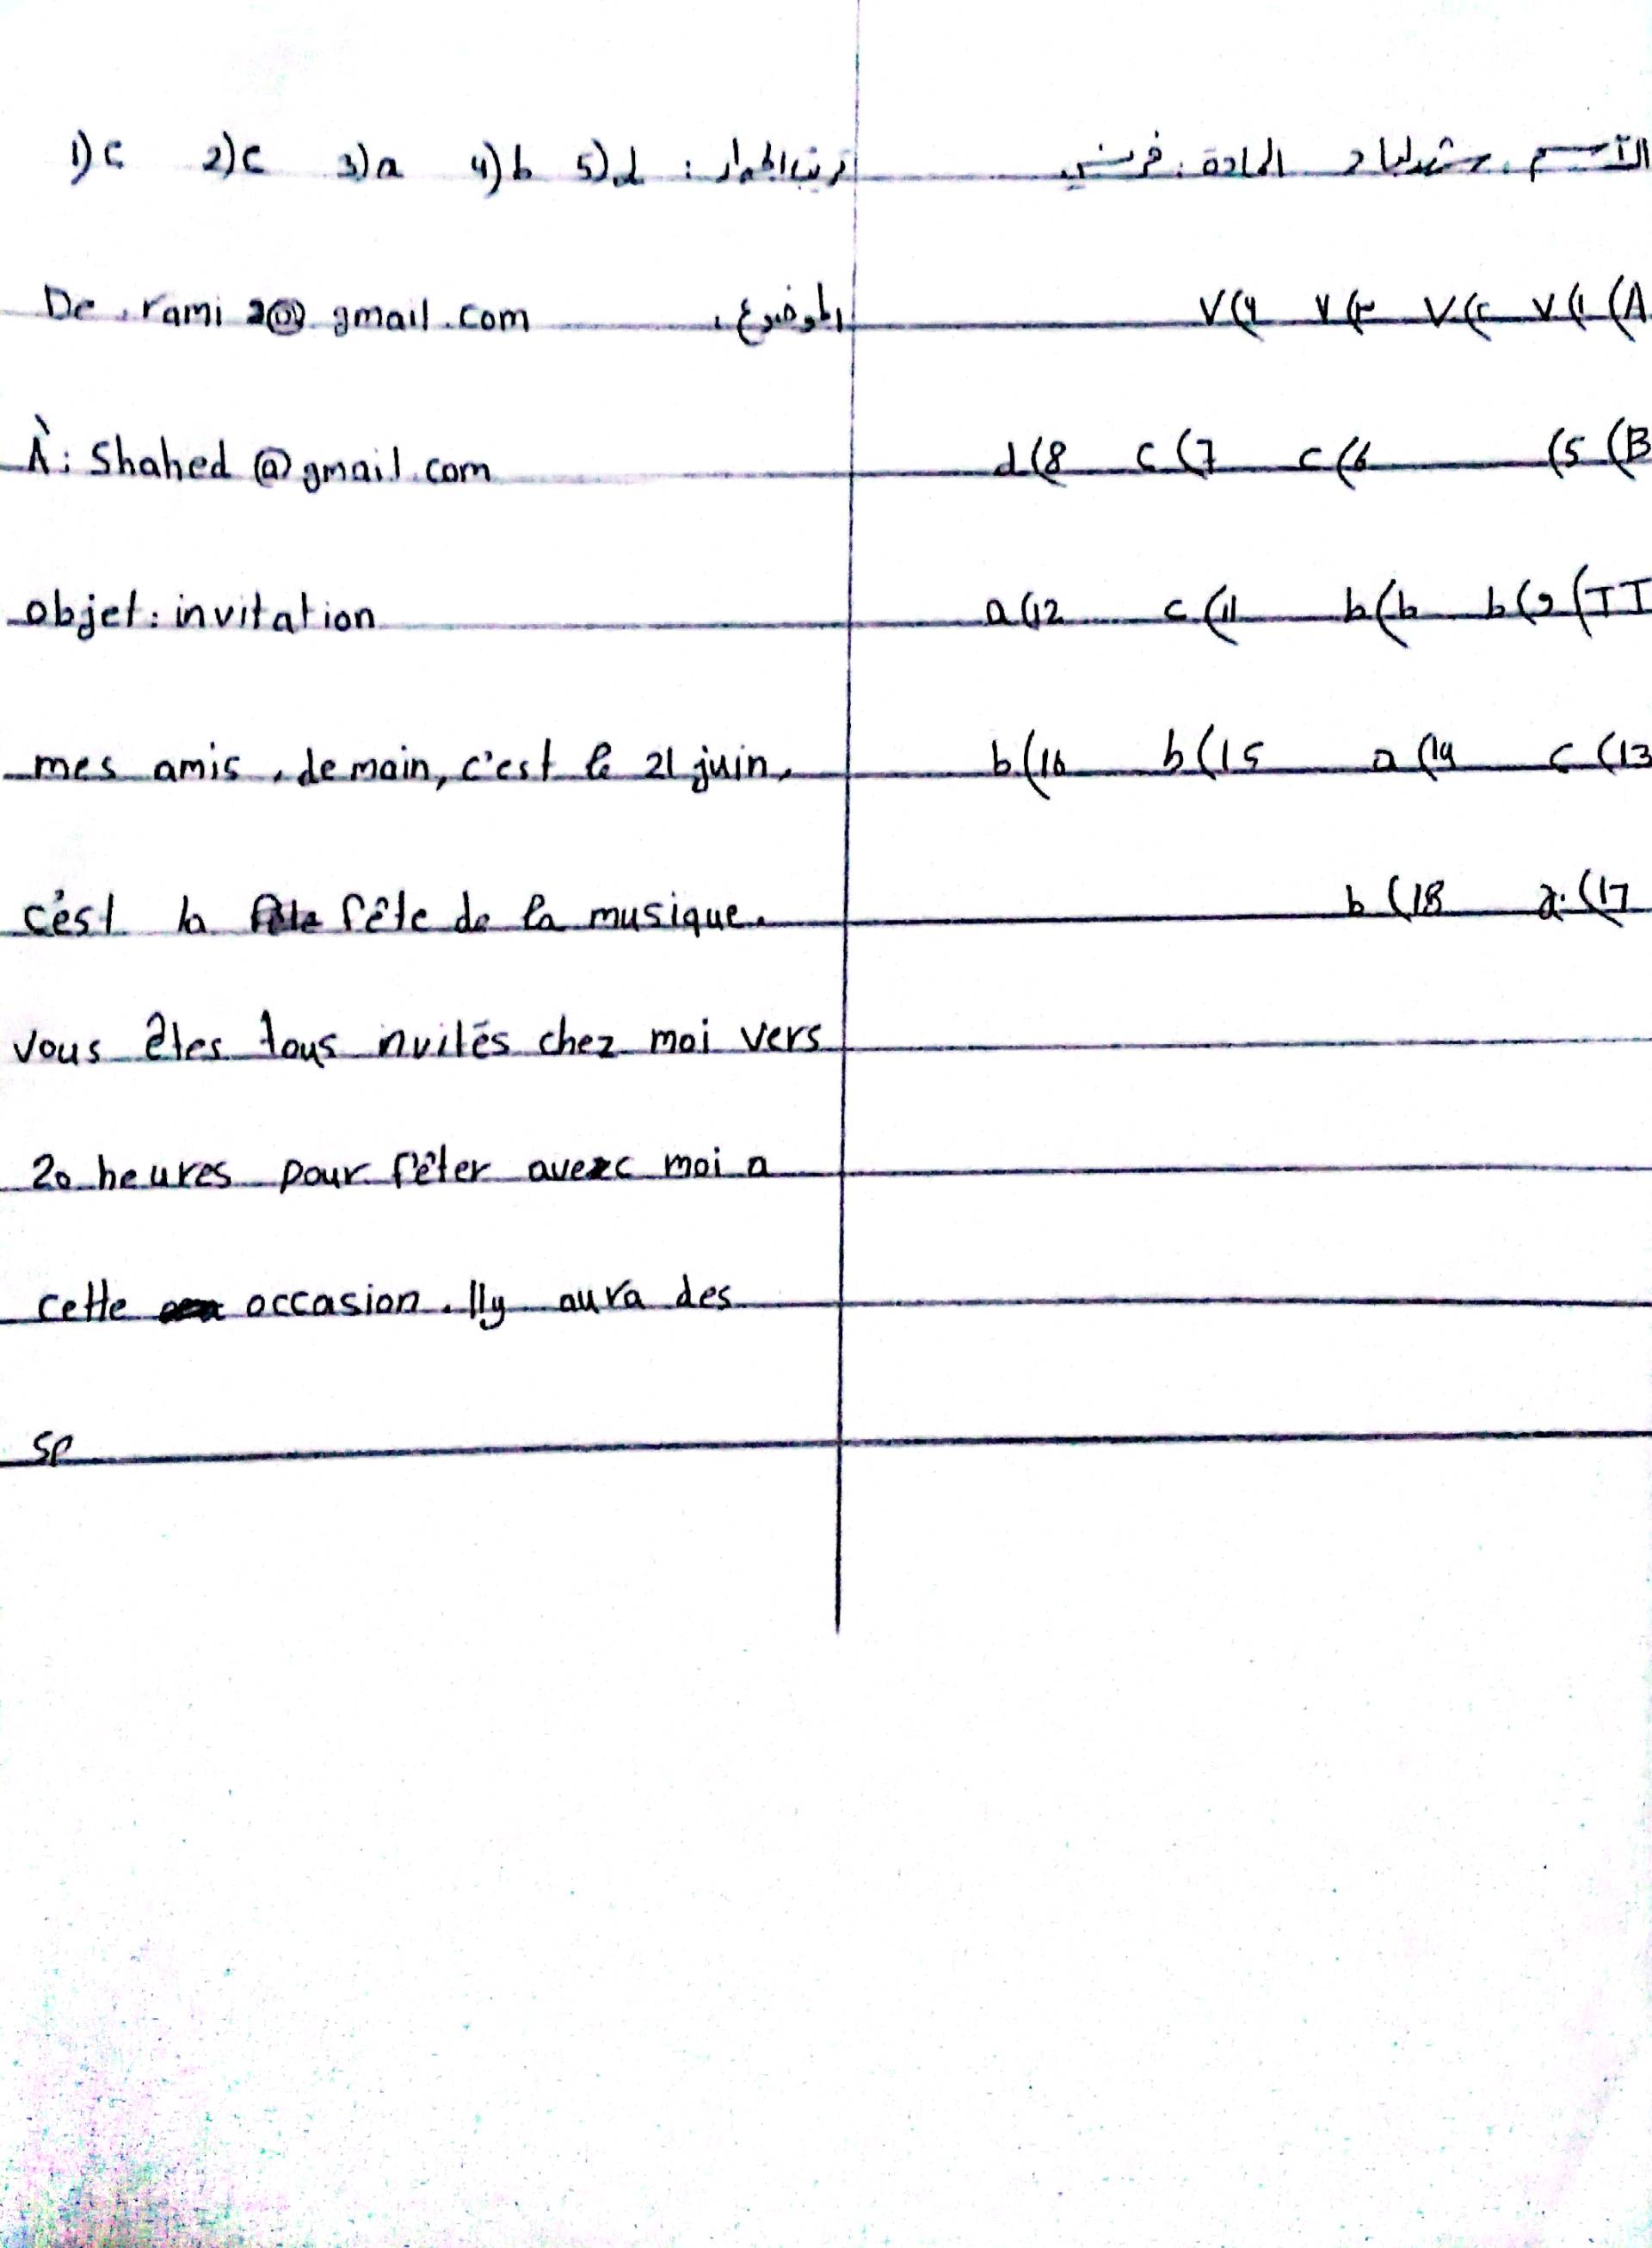 المادة : فرنسي
A) 1) V 2) V 3) V 4) V
B) 5) 6) c 7) c 8) d
II) 9) b b) b 11) c 12) a
13) c 14) a 15) b 16) b
17) a 18) b
ترتيب الحوار : 1) c 2) c 3) a 4) b 5) d
الموضوع :
De : rami 2@gmail.com
À : Shahed @gmail.com
objet : invitation
mes amis, demain, c'est le 21 juin,
c'est la fête de la musique.
vous êtes tous nvités chez moi vers
20 heures pour fêter avec moi a
cette occasion. Il y aura des
sp